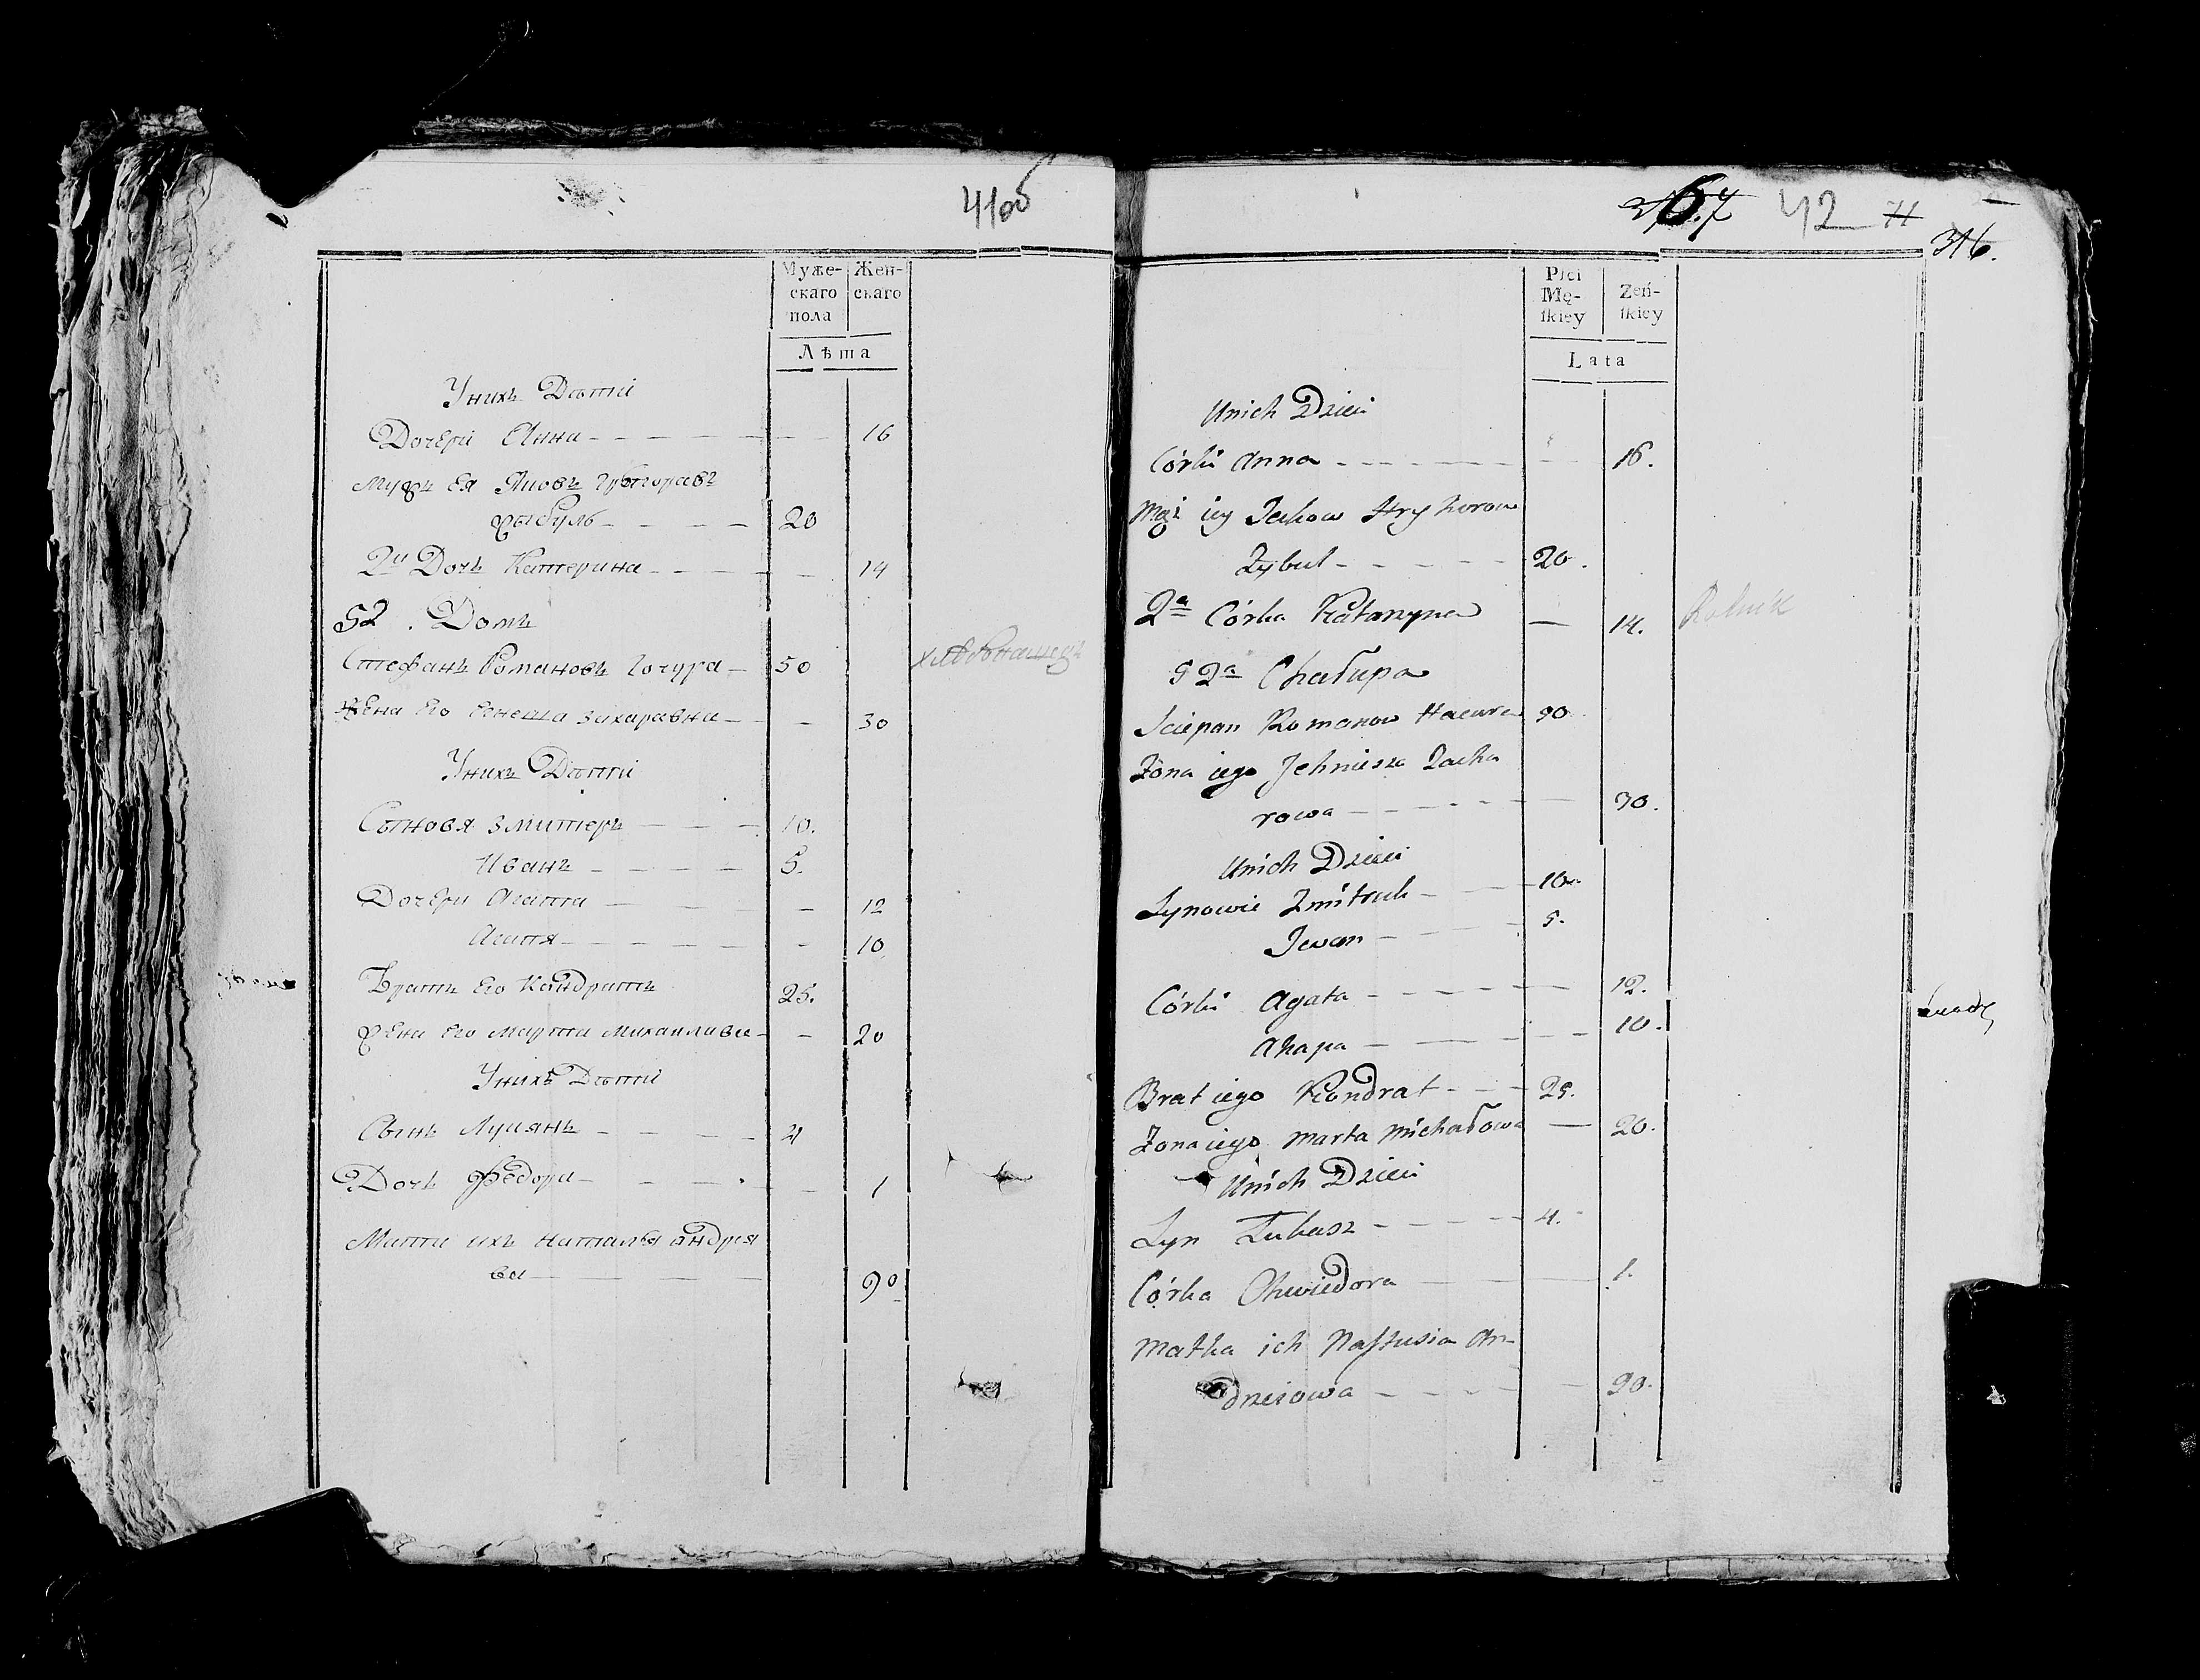 41об
Муже-
скаго
пола
Жен-
скаго
Лѣта
Унихъ Дѣти
Дочери Анна - - - - 16
Мужъ Ея Яковъ Грыгоравъ
Жыбуль - - - - 20
2я Дочь Катерина - - - 14
52. Домъ
Стефанъ Романовъ Гочура - 50
хлѣбопашецъ
Жена Его Генеша Захаравна - - 30
Унихъ Дѣти
Сыновя Змитеръ - - - 10.
Иванъ - - - - 5.
Дочери Агата - - - - 12
Агапя - - - - 10
Братъ Его Кондратъ 25.
Жена Его Марта Михайлава - - 20
Унихъ Дѣти
Сынъ Лукянъ - - - - 4
Дочь Федора - - - - 1
Мати ихъ Наталья Андрея
ва - - - - 90
42
316.
Płci
Mę-
ſkiey
Zeń-
ſkiey
Lata
Unich Dzieci
Córki Anna - - - - 16.
Mąż iey Jakow Hryhorow
Zybul - - - - 20.
2a Córka Katarzyna - 14.
Rolnik
52a Chałupa
Sciepan Romanow Haćura 50.
Żona iego Jehniesza Zacha
rowa - - - - 30.
Unich Dzieci
Synowie Zmitruk - - - 10.
Jwan - - - 5.
Córki Agata - - - - 12.
Ahapa - - - - 10.
Brat iego Kondrat - - - 25.
Żona iego Marta Michałowa - 20.
Unich Dzieci
Syn Łukasz - - - - 4.
Córka Chwiedora - - - 1.
Matka ich Nastusia An-
drzeiowa - - - - 90.